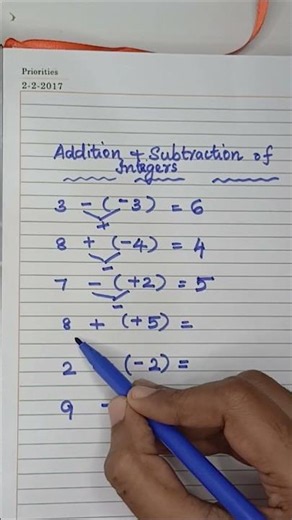 Priorities
2-2-2017
Addition & Subtraction of
Integers
3 - (-3) = 6
+
8 + (-4) = 4
-
7 - (+2) = 5
-
8 + (+5) =
2 (-2) =
9